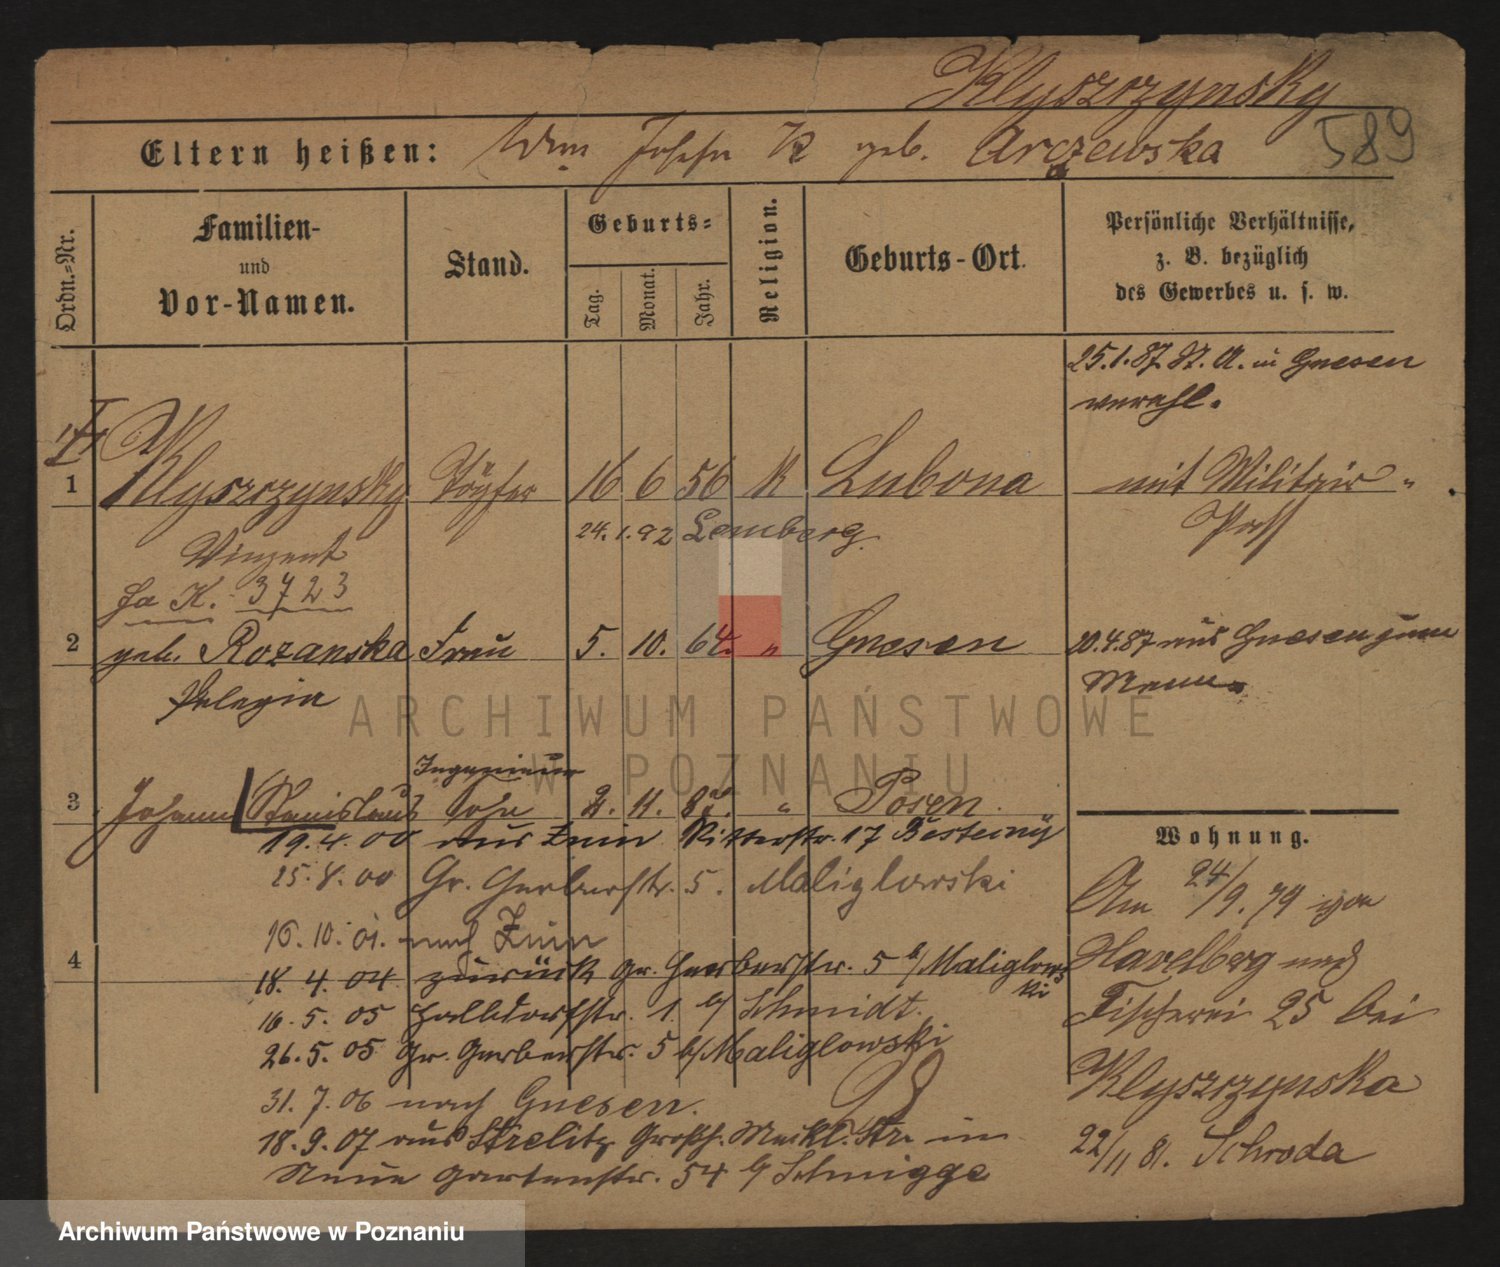 Klyszczynsky
589
Eltern heißen: Wwe Josefa K geb. Arczewska
Ordn.=Nr.
Familien-
und
Vor-Namen.
Stand.
Geburts=
Tag.
Monat.
Jahr.
Religion.
Geburts-Ort.
Persönliche Verhältnisse,
z. B. bezüglich
des Gewerbes u. s. w.
25.1.87. St. A. in Gnesen
verehl.
1 Klyszczynsky Töpfer 16 6 56 K Lubona mit Militair-
Paß
24.1.92 Lemberg.
Vinzent
K. 3723
2 geb. Rozanska Frau 5. 10. 64. " Gnesen 20.4.87 aus Gnesen zum
Pelagia Mann
Ingenieur
3 Johann Stanislaus Sohn 2. 11. 87. " Posen.
19.4.00 aus Znin Ritterstr. 17
25.8.00 Gr. Gerberstr. 5. Maliglowski
16.10.01. nach Znin
4
18.4.04 zurück Gr. Gerberstr. 5 b/Maliglowski
16.5.05 Halldorfstr. 1. b/ Schmidt.
26.5.05 Gr. Gerberstr. 5 b/Maliglowski
31.7.06 nach Gnesen.
18.9.07 aus Strelitz Großh. Meckl. Str. in
Neue Gartenstr. 54 b/ Schnigge
Wohnung.
Am 24/9.79 von
Havelberg nach
Fischerei 25 bei
Klyszczynska
22/11 81. Schroda
ARCHIWUM PAŃSTWOWE
W POZNANIU
Archiwum Państwowe w Poznaniu